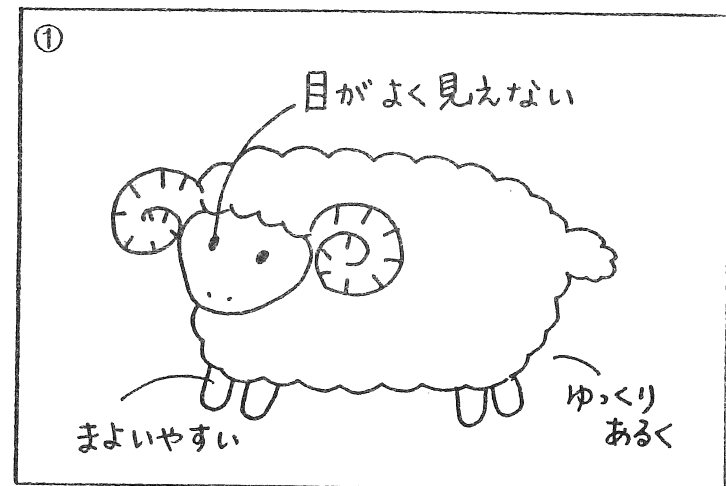 ①
目がよく見えない
まよいやすい
ゆっくり
あるく